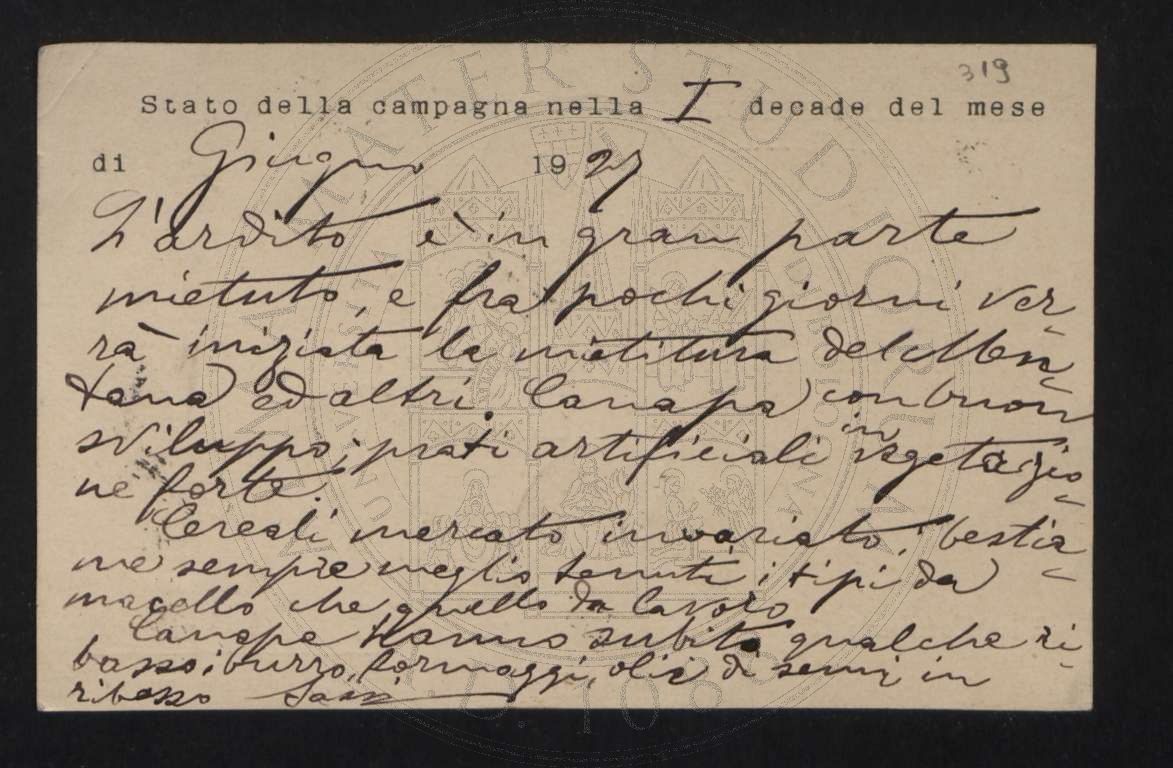 319
Stato della campagna nella I decade del mese
di Giugno 1927
L'ardito è in gran parte
mietuto, e fra pochi giorni ver-
rà iniziata la mietitura del Men-
tana ed altri. Canapa con buon
sviluppo; prati artificiali in vegetazio-
ne forte.
Cereali mercato invariato; bestia-
me sempre meglio tenuti i tipi da
macello che quello da lavoro
Canape Hanno subito qualche ri-
basso; burro, formaggi, olii di semi, in
ribasso Sassi
ALMA MATER STUDIORUM
A.D. 1088